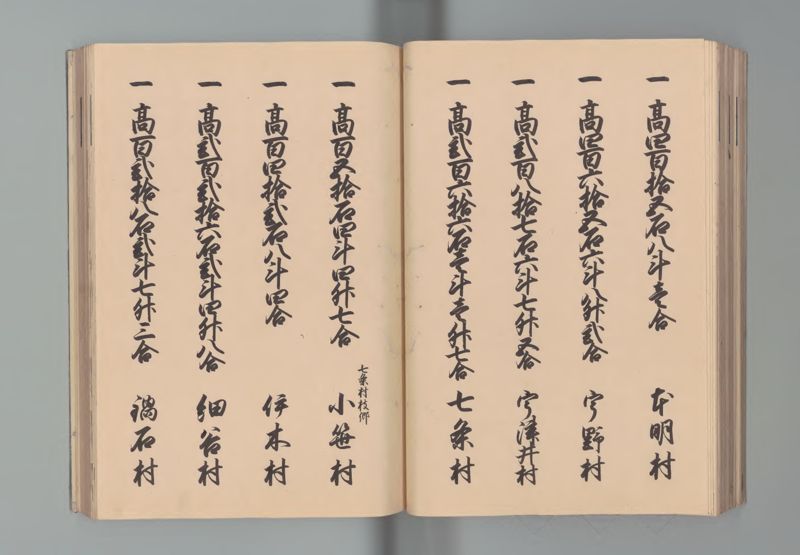 一 高四百拾五石八斗壱合 本明村
一 高四百六拾五石六斗八升弐合 宇野村
一 高弐百八拾七石六斗七升五合 宇津井村
一 高弐百六拾六石壱斗壱升七合 七条村
一 高百五拾石四斗四升七合 七条村枝郷 小笹村
一 高百四拾弐石八斗四合 伊木村
一 高弐百弐拾六石弐斗四升八合 細谷村
一 高百弐拾八石弐斗七升三合 鍋石村